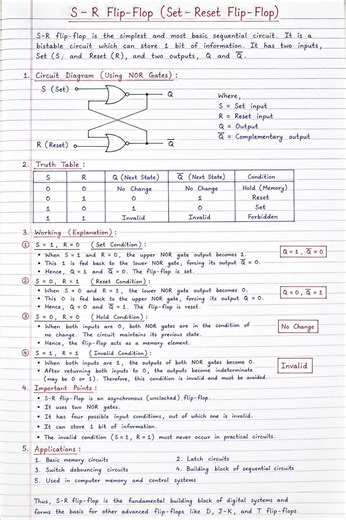 S-R Flip-Flop (Set-Reset Flip-Flop)
S-R flip-flop is the simplest and most basic sequential circuit. It is a
bistable circuit which can store 1 bit of information. It has two inputs,
Set (S) and Reset (R), and two outputs, Q and Q̅.
1. Circuit Diagram (Using NOR Gates) :
S (Set)
Q
R (Reset)
Q̅
Where,
S = Set input
R = Reset input
Q = Output
Q̅ = Complementary output
2. Truth Table :
S R Q (Next State) Q̅ (Next State) Condition
0 0 No Change No Change Hold (Memory)
0 1 0 1 Reset
1 0 1 0 Set
1 1 Invalid Invalid Forbidden
3. Working (Explanation) :
① S = 1, R = 0 (Set Condition) :
• When S = 1 and R = 0, the upper NOR gate output becomes 1.
• This 1 is fed back to the lower NOR gate, forcing its output Q̅ = 0.
• Hence, Q = 1 and Q̅ = 0. The flip-flop is set.
Q = 1, Q̅ = 0
② S = 0, R = 1 (Reset Condition) :
• When S = 0 and R = 1, the lower NOR gate output becomes 0.
• This 0 is fed back to the upper NOR gate, forcing its output Q = 0.
• Hence, Q = 0 and Q̅ = 1. The flip-flop is reset.
Q = 0, Q̅ = 1
③ S = 0, R = 0 (Hold Condition) :
• When both inputs are 0, both NOR gates are in the condition of
no change. The circuit maintains its previous state.
• Hence, the flip-flop acts as a memory element.
No Change
④ S = 1, R = 1 (Invalid Condition) :
• When both inputs are 1, the outputs of both NOR gates become 0.
• After returning both inputs to 0, the outputs become indeterminate
(may be 0 or 1). Therefore, this condition is invalid and must be avoided.
Invalid
4. Important Points :
• S-R flip-flop is an asynchronous (unclocked) flip-flop.
• It uses two NOR gates.
• It has four possible input conditions, out of which one is invalid.
• It can store 1 bit of information.
• The invalid condition (S = 1, R = 1) must never occur in practical circuits.
5. Applications :
1. Basic memory circuits 2. Latch circuits
3. Switch debouncing circuits 4. Building block of sequential circuits
5. Used in computer memory and control systems
Thus, S-R flip-flop is the fundamental building block of digital systems and
forms the basis for other advanced flip-flops like D, J-K, and T flip-flops.